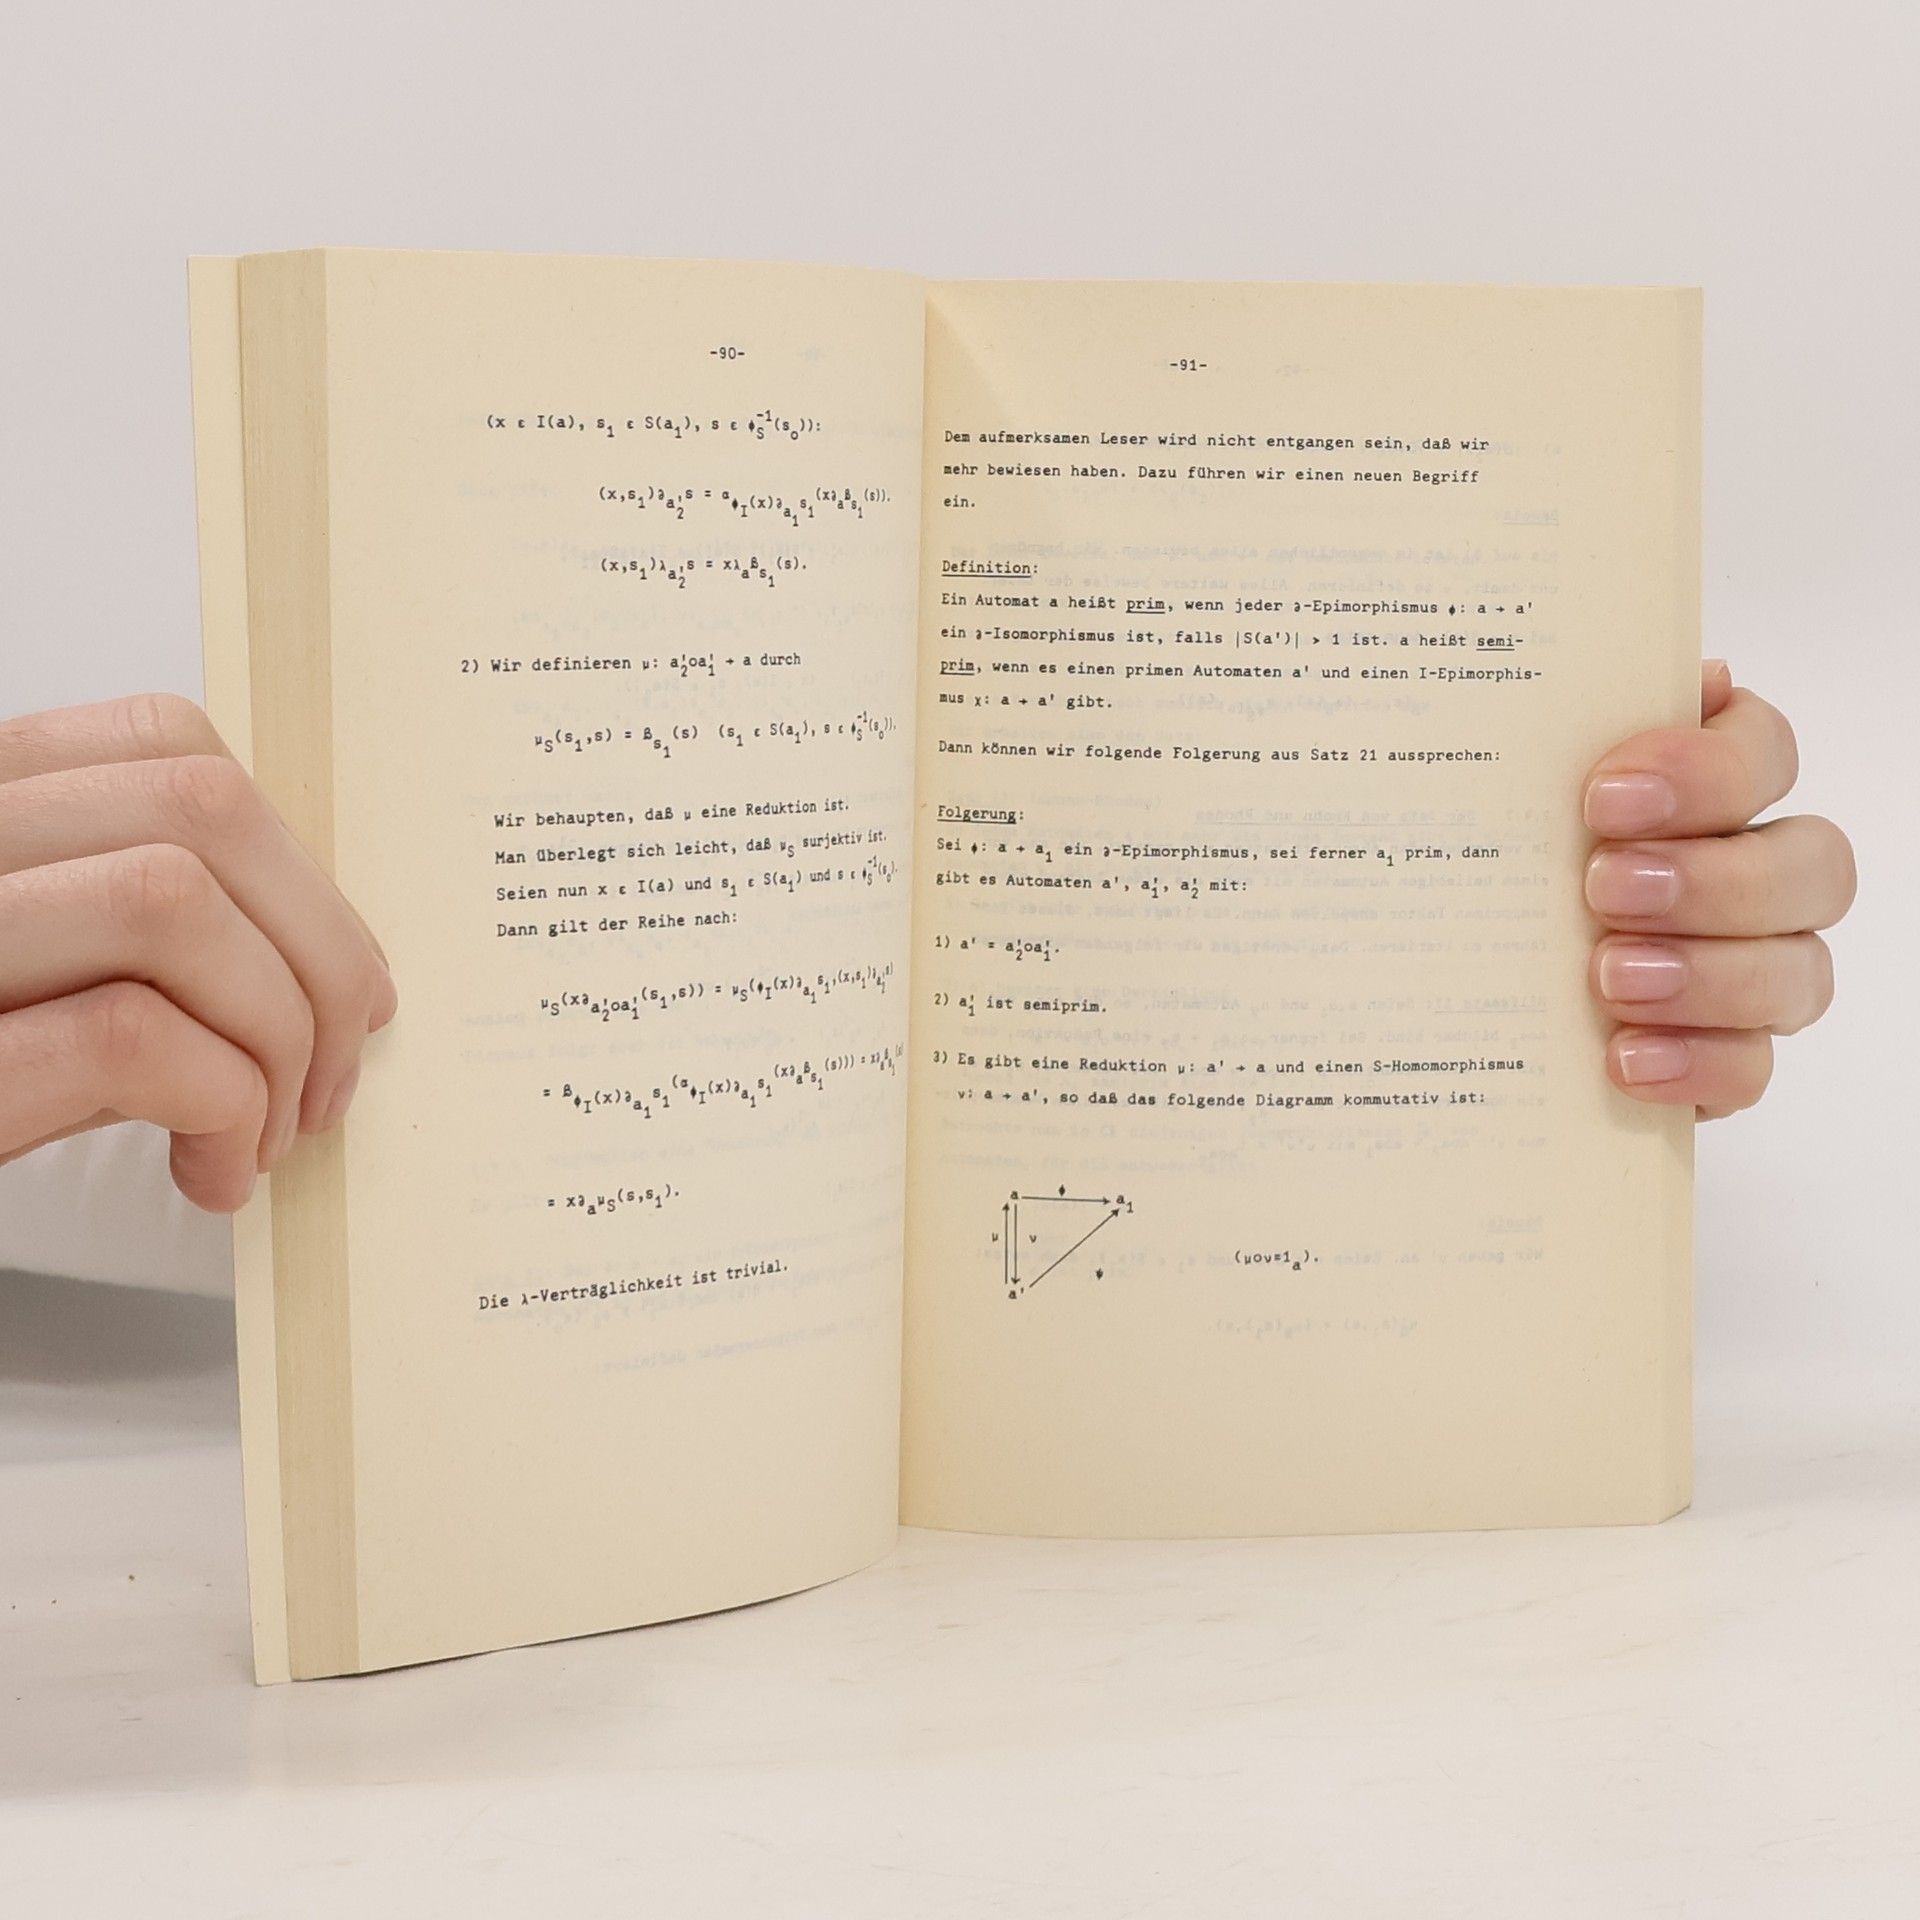 -90-
(x ε I(a), s₁ ε S(a₁), s ε ϕ_S^{-1}(s_o)):
(x,s₁)∂_{a₂'}s = α_{ϕ_I(x)∂_{a₁}s₁}(x∂_aβ_{s₁}(s)).
(x,s₁)λ_{a₂'}s = xλ_aβ_{s₁}(s).
2) Wir definieren μ: a₂'oa₁' → a durch
μ_S(s₁,s) = β_{s₁}(s) (s₁ ε S(a₁), s ε ϕ_S^{-1}(s_o)).
Wir behaupten, daß μ eine Reduktion ist.
Man überlegt sich leicht, daß μ_S surjektiv ist.
Seien nun x ε I(a) und s₁ ε S(a₁) und s ε ϕ_S^{-1}(s_o).
Dann gilt der Reihe nach:
μ_S(x∂_{a₂'oa₁'}(s₁,s)) = μ_S(ϕ_I(x)∂_{a₁}s₁,(x,s₁)∂_{a₂'}s)
= β_{ϕ_I(x)∂_{a₁}s₁}(α_{ϕ_I(x)∂_{a₁}s₁}(x∂_aβ_{s₁}(s))) = x∂_aβ_{s₁}(s)
= x∂_aμ_S(s,s₁).
Die λ-Verträglichkeit ist trivial.
-91-
Dem aufmerksamen Leser wird nicht entgangen sein, daß wir
mehr bewiesen haben. Dazu führen wir einen neuen Begriff
ein.
Definition:
Ein Automat a heißt prim, wenn jeder ∂-Epimorphismus ϕ: a → a'
ein ∂-Isomorphismus ist, falls |S(a')| > 1 ist. a heißt semi-
prim, wenn es einen primen Automaten a' und einen I-Epimorphis-
mus χ: a → a' gibt.
Dann können wir folgende Folgerung aus Satz 21 aussprechen:
Folgerung:
Sei ϕ: a → a₁ ein ∂-Epimorphismus, sei ferner a₁ prim, dann
gibt es Automaten a', a₁', a₂' mit:
1) a' = a₂'oa₁'.
2) a₁' ist semiprim.
3) Es gibt eine Reduktion μ: a' → a und einen S-Homomorphismus
ν: a → a', so daß das folgende Diagramm kommutativ ist:
a ϕ a₁
μ ν
ψ (μoν=1_a).
a'